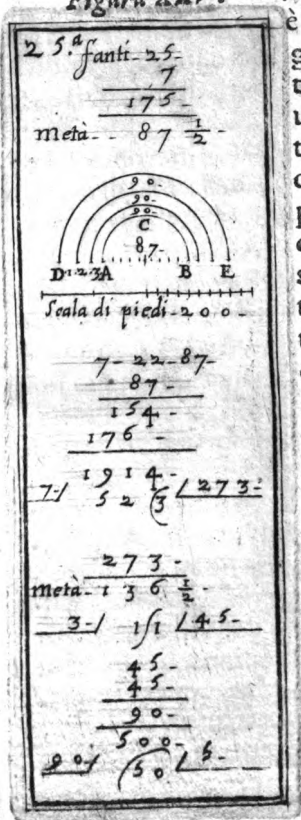 25.ª fanti-25-
7
175-
metà-- 87 1/2 -
90-
90-
90-
C
87-
D·1·2·3·A B E
Scala di piedi-200-
7-22-87-
87-
154-
176-
1914-
7-/ 52(3 /273-
273-
metà-136 1/2 -
3-/ 1∫1 /45-
45-
45-
90-
500-
90/ (50 /5-